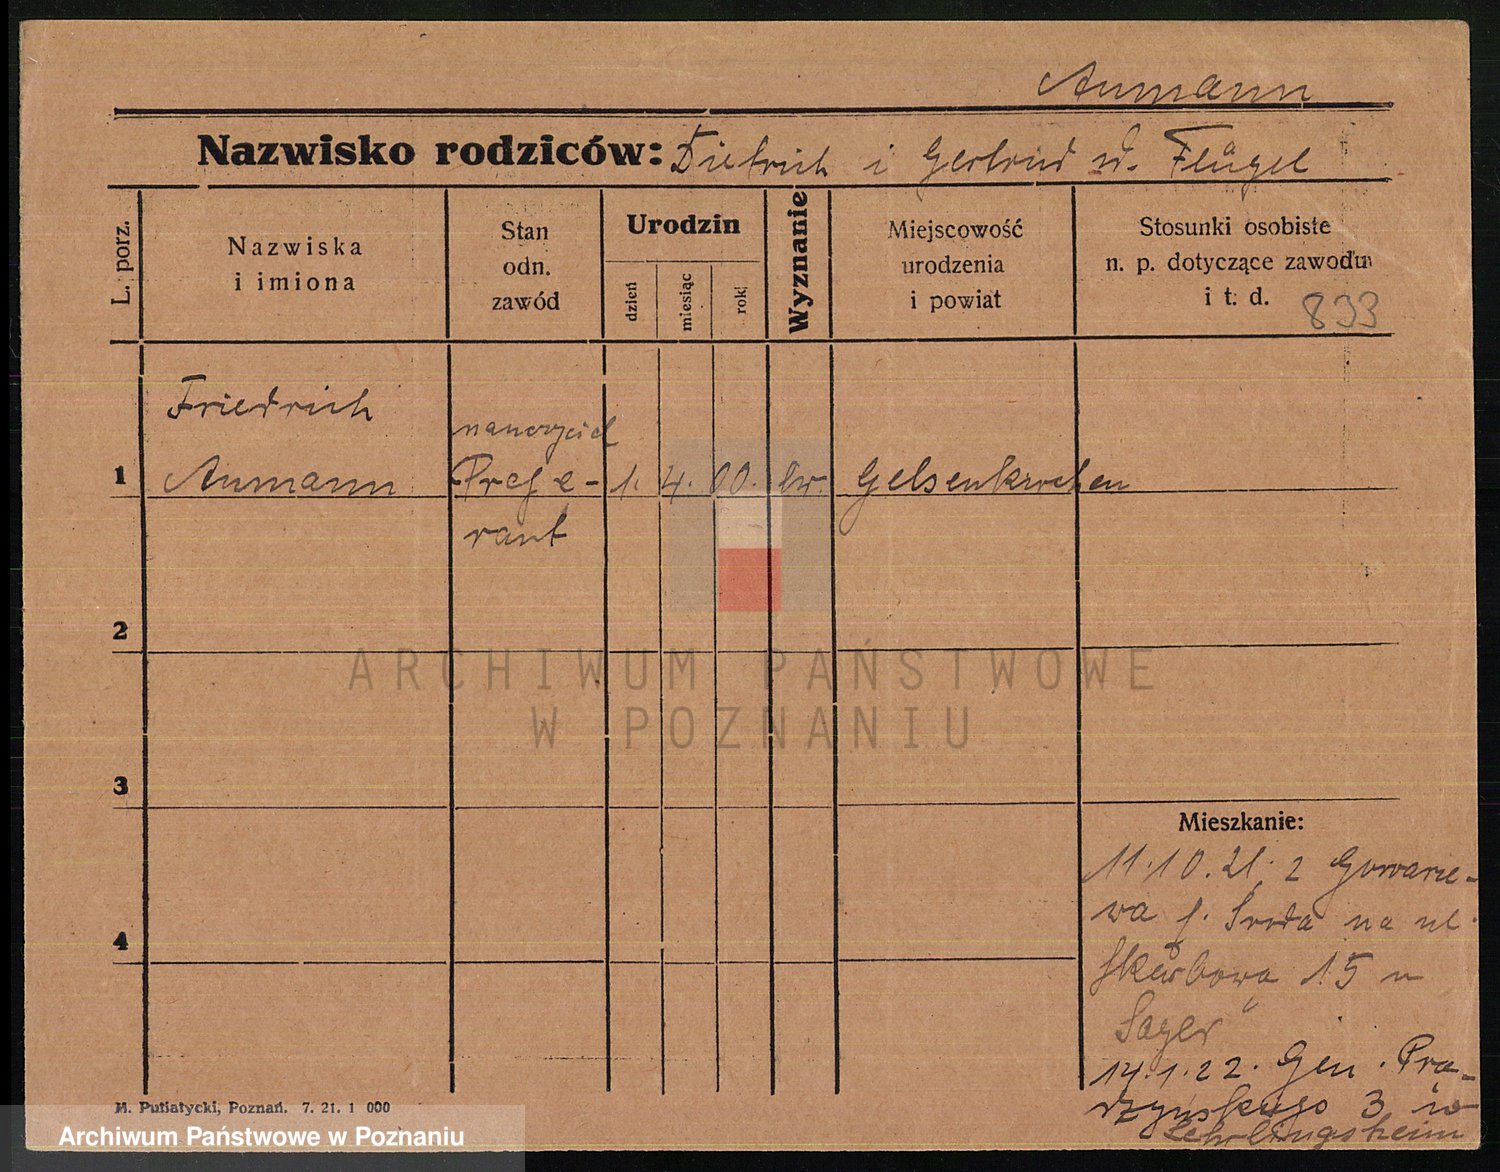 Aumann
Nazwisko rodziców: Dietrich i Gertrud d. Flügel
L. porz.
Nazwiska
i imiona
Stan
odn.
zawód
Urodzin
dzień
miesiąc
rok
Wyznanie
Miejscowość
urodzenia
i powiat
Stosunki osobiste
n. p. dotyczące zawodu
i t. d. 893
Friedrich
nauczyciel
1 Aumann Prefe- 1. 4. 00. Gelsenkirchen
rant
2
ARCHIWUM PAŃSTWOWE
W POZNANIU
3
Mieszkanie:
11.10.21. z Gowarze-
wa p. Środa na ul.
4
Skarbowa 15 u
Sager
14.1.22. Gen. Prą-
dzyńskiego 3 w
Lehrlingsheim
M. Putiatycki, Poznań. 7. 21. 1 000
Archiwum Państwowe w Poznaniu